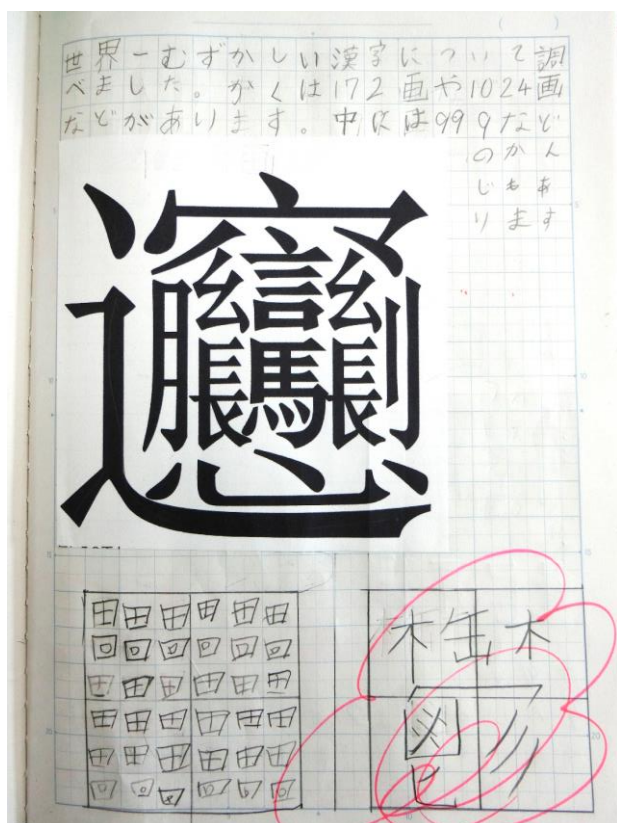 世界一むずかしい漢字について調
べました。かくは172画や1024画
などがあります。中には999など
のかん
じもあ
ります
𰻞
田田田田田田
回回回回回回
田田田田田田
田田田田田田
田田田田田田
回回回回回回
鬱